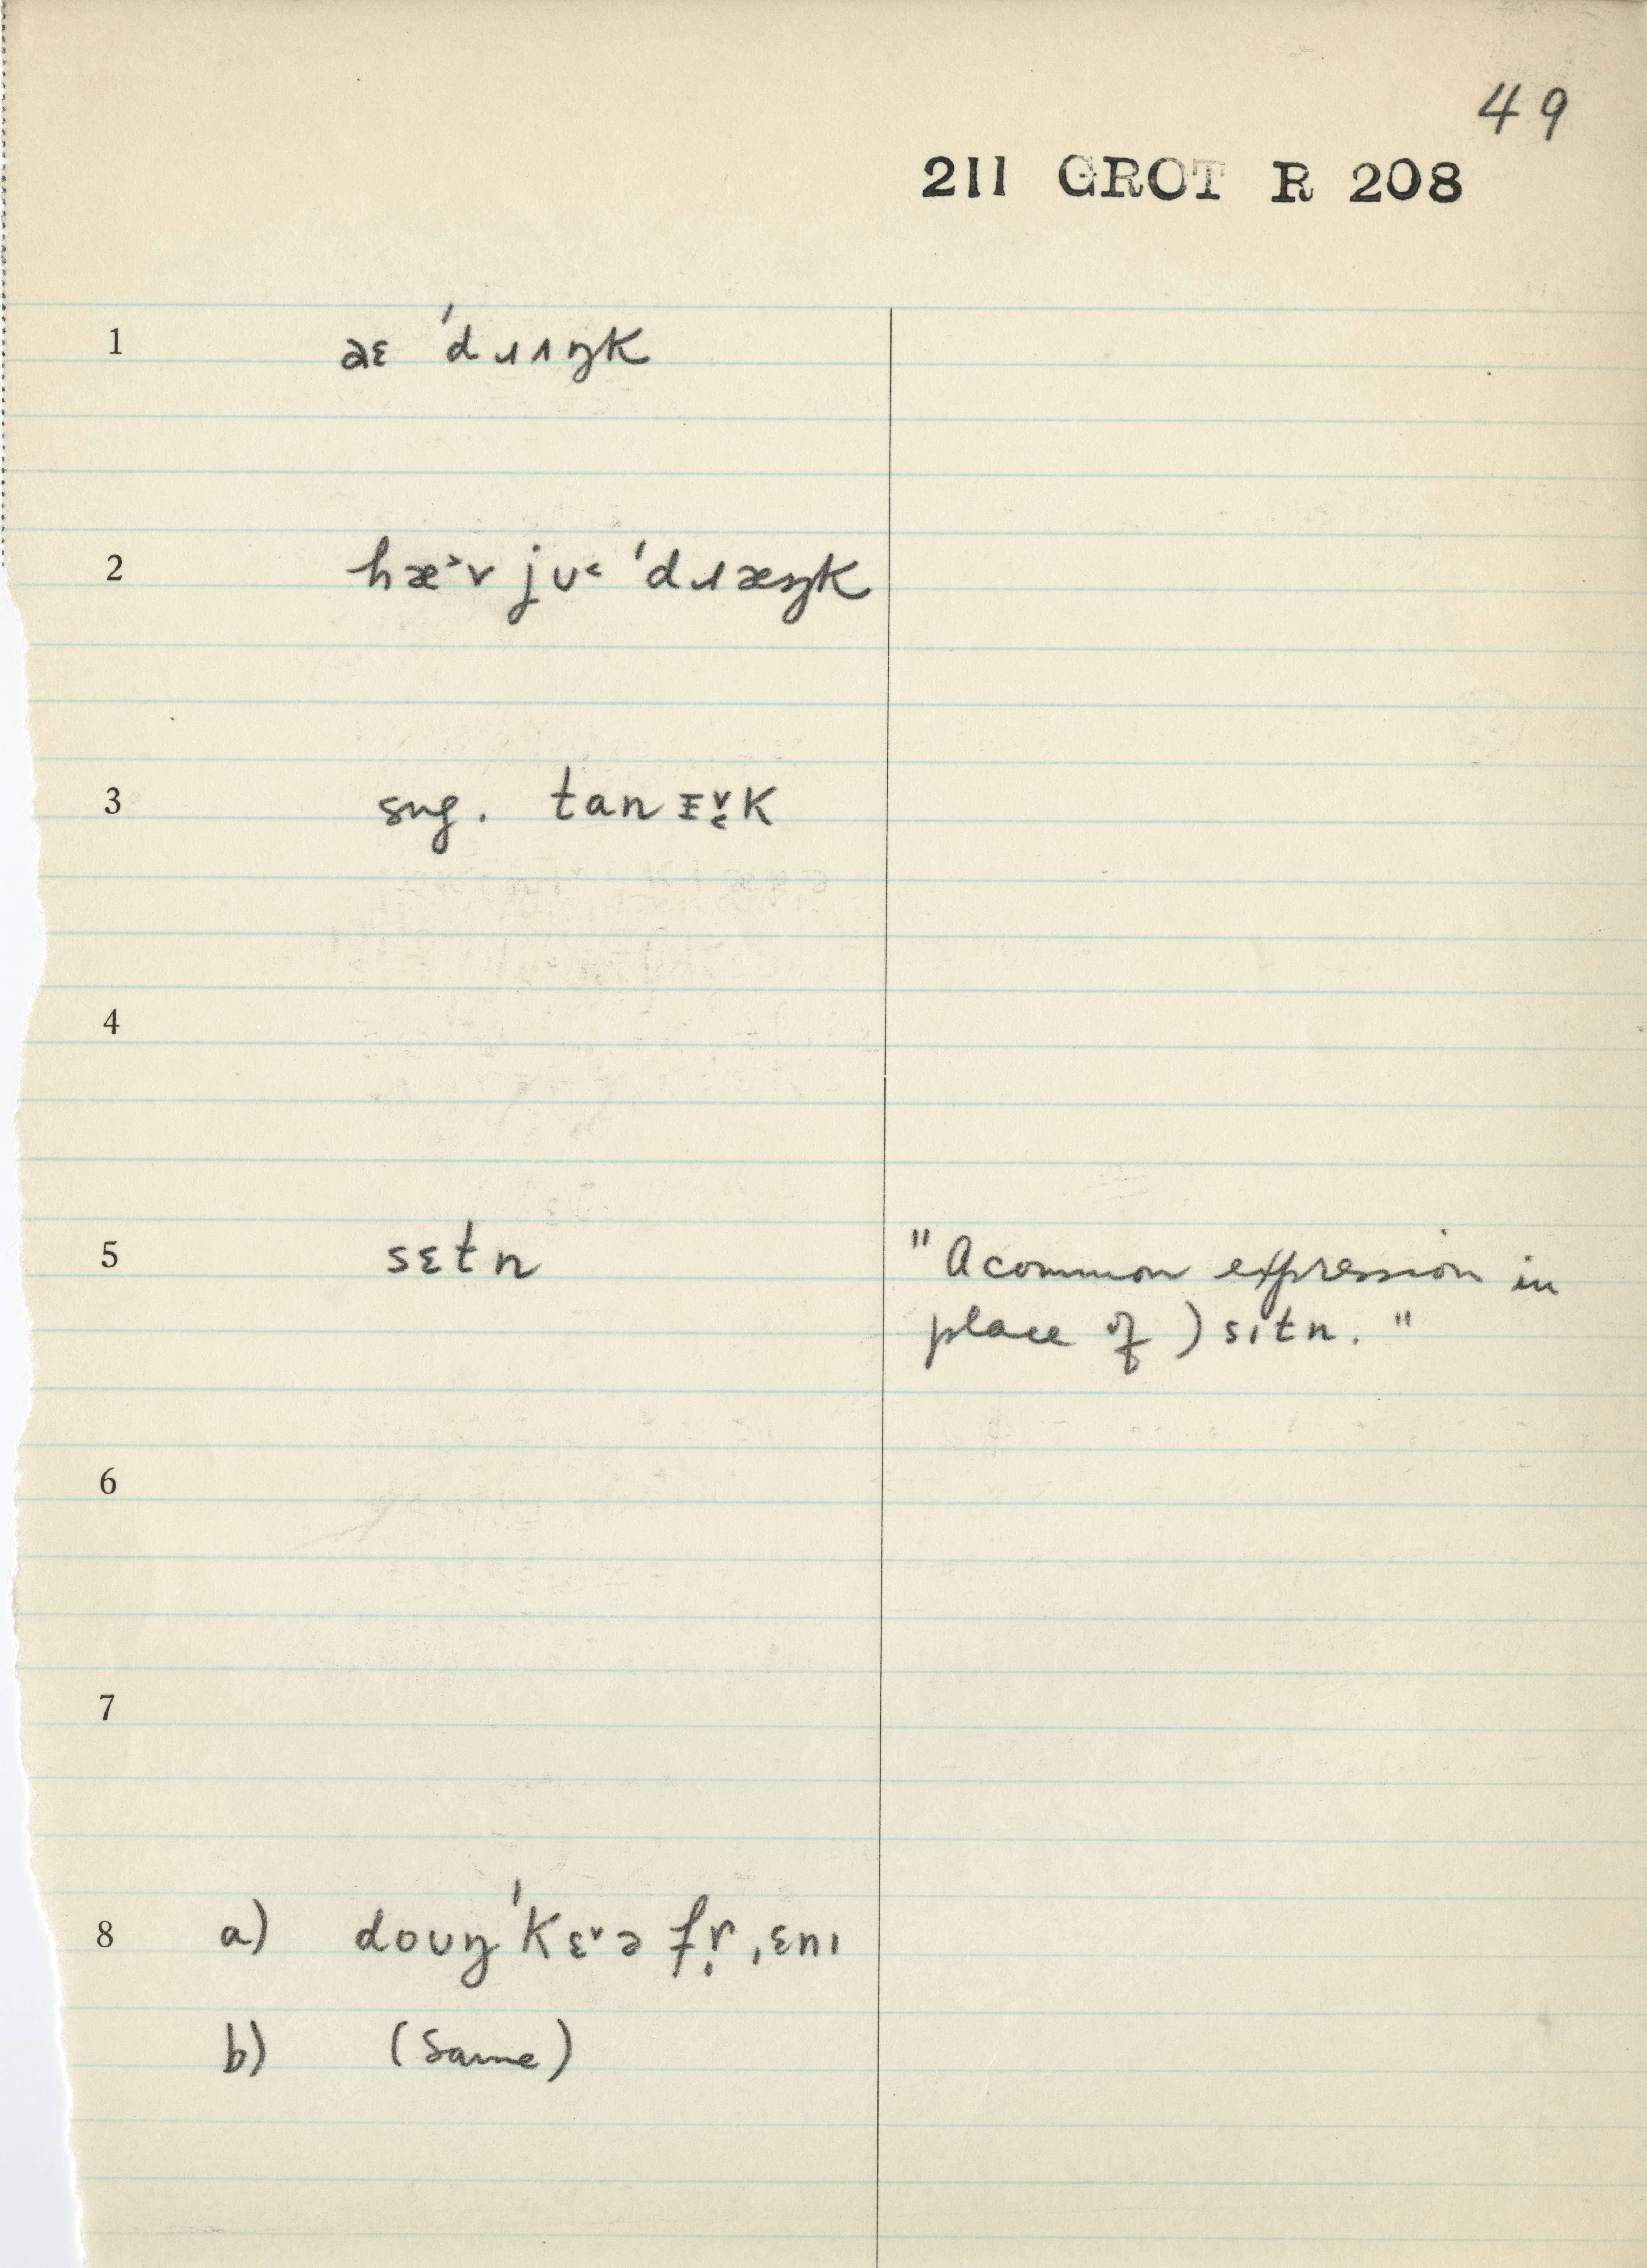 49
211 GROT R 208
1 aɛ ˈdɹʌŋk
2 hæ˃v jʊ˂ ˈdɹæŋk
3 sug. tan ɪ̬̞k
4
5 sɛtn "A common expression in
place of ) sɪtn."
6
7
8 a) doʊŋ ˈkɛ˅ə fɚ ˌɛnɪ
b) (Same)